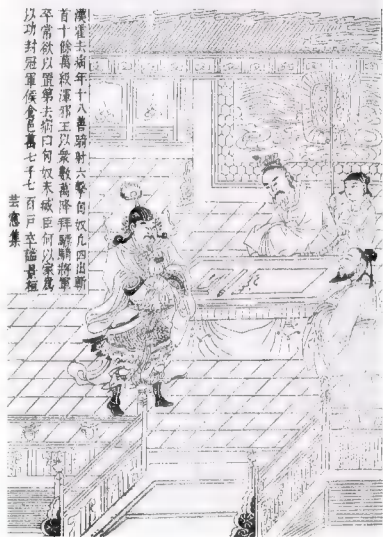 漢霍去病年十八善騎射六擊匈奴凡四出斬
首十餘萬級渾邪王以衆數萬降拜驃騎將軍
常欲以置第去病曰匈奴未滅臣何以家爲
以功封冠軍侯食邑萬七千七百戶卒諡景桓
芸窻集